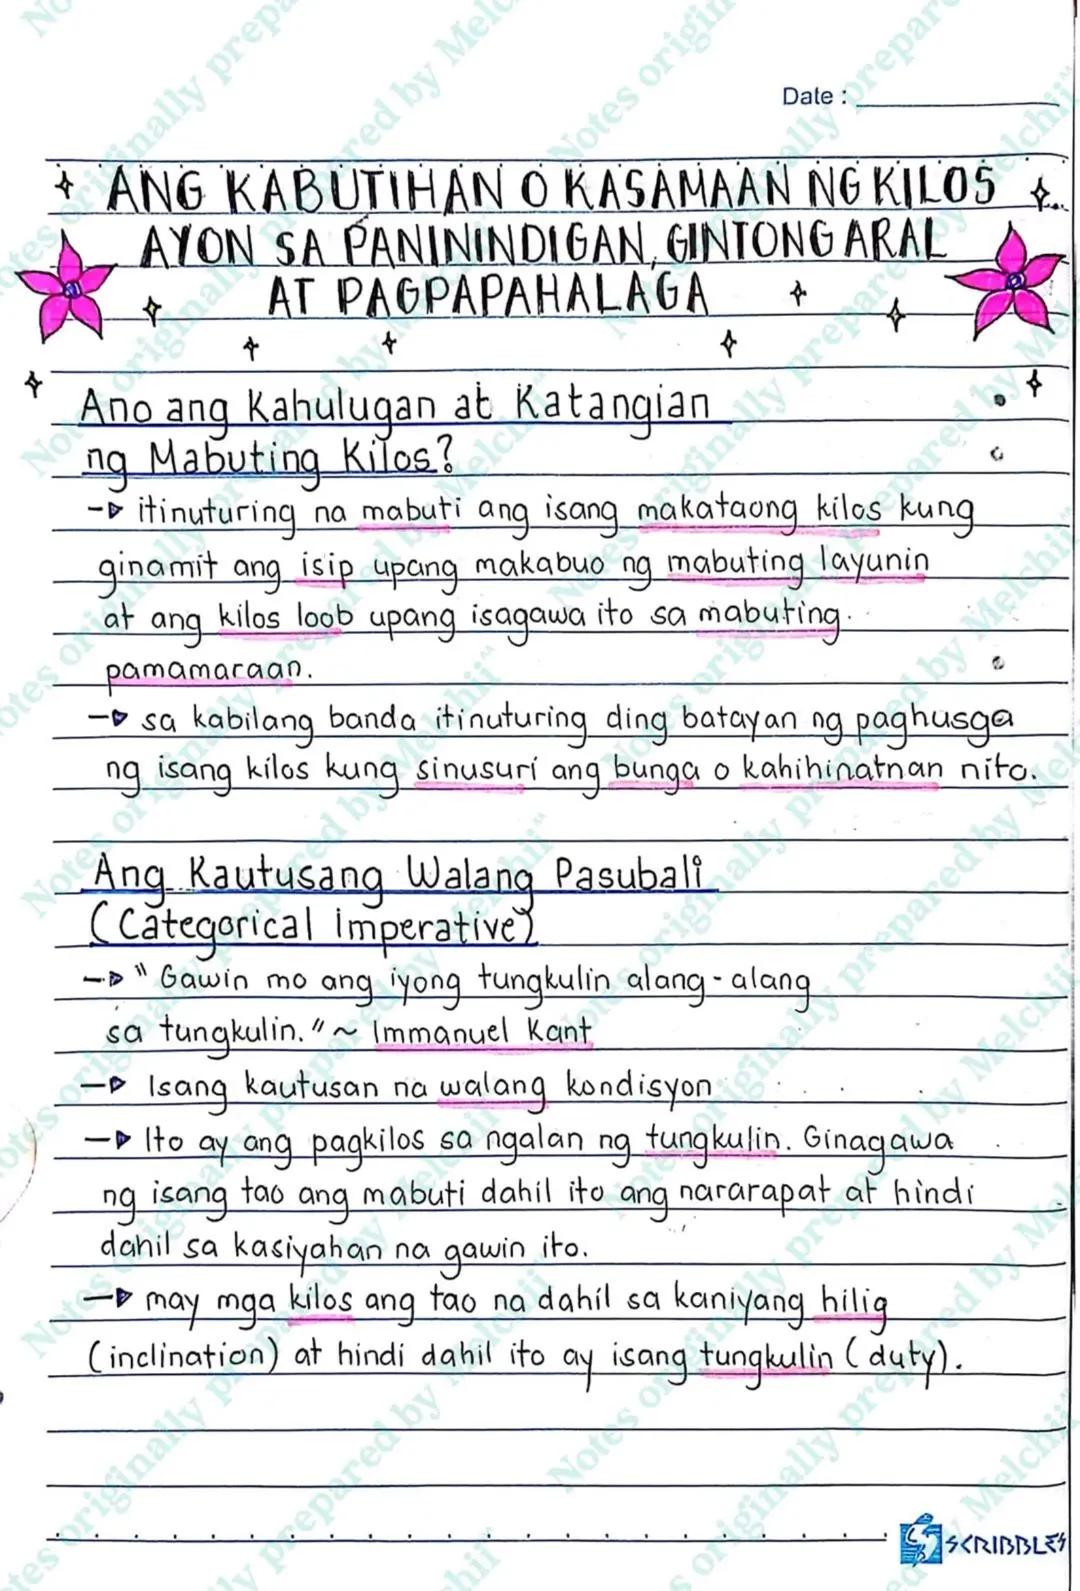 Date :
ANG KABUTIHAN O KASAMAAN NG KILOS
AYON SA PANININDIGAN, GINTONG ARAL
AT PAGPAPAHALAGA
Ano ang Kahulugan at Katangian
ng Mabuting Kilos?
itinuturing na mabuti ang isang makataong kilos kung
ginamit ang isip upang makabuo ng mabuting layunin
at ang kilos loob upang isagawa ito sa mabuting.
pamamaraan.
sa kabilang banda itinuturing ding batayan ng paghusga
ng isang kilos kung sinusuri ang bunga o kahihinatnan nito.
Ang Kautusang Walang Pasubali
(Categorical imperative)
"Gawin mo ang iyong tungkulin alang-alang
sa tungkulin." ~ Immanuel Kant
Isang kautusan na walang kondisyon
Ito ay ang pagkilos sa ngalan ng tungkulin. Ginagawa
ng isang tao ang mabuti dahil ito ang nararapat at hindi
dahil sa kasiyahan na gawin ito.
may mga kilos ang tao na dahil sa kaniyang hilig
(inclination) at hindi dahil ito ay isang tungkulin (duty).
SCRIBBLES
Notes originally prepared by Melchii"